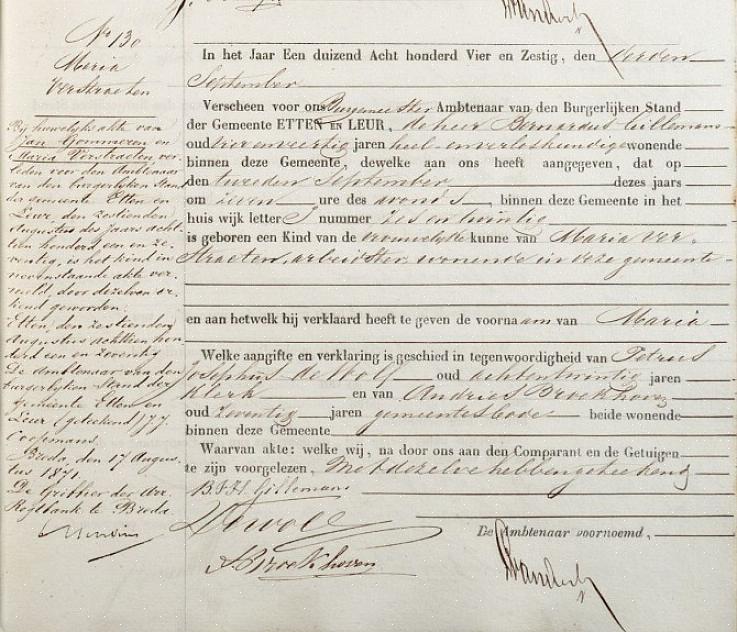 No 130
Maria
Verstraeten
Bij huwelijks akte van
Jan Gommeren en
Maria Verstraeten ver-
leden voor den Ambtenaar
van den burgerlijken Stand
der gemeente Etten en
Leur, den zestienden
Augustus des jaars acht-
tien honderd een en ze-
ventig, is het kind in
nevenstaande akte ver-
meld, door dezelven er-
kend geworden.
Etten, den zestienden
Augustus achttien hon-
derd een en zeventig
De Ambtenaar van den
burgerlyken Stand der
gemeente Etten en
Leur (geteekend)
Coopmans.
Breda, den 17 Augus-
tus 1871.
De Griffier der Arr.
Regtbank te Breda.
In het Jaar Een duizend Acht honderd Vier en Zestig, den derden
September
Verscheen voor ons Burgemeester Ambtenaar van den Burgerlijken Stand
der Gemeente ETTEN EN LEUR, de heer Bernardus Gillemans
oud vier en veertig jaren heel- en verloskundige wonende
binnen deze Gemeente, dewelke aan ons heeft aangegeven, dat op
den tweeden September dezes jaars
om zeven ure des avonds, binnen deze Gemeente in het
huis wijk letter nummer zes en twintig
is geboren een Kind van de vrouwelyke kunne van Maria Ver-
straeten, arbeidster, wonende in deze gemeente
en aan hetwelk hij verklaard heeft te geven de voornaam van Maria
Welke aangifte en verklaring is geschied in tegenwoordigheid van Petrus
Josephus de Wolf oud acht en twintig jaren
Klerk en van Andries Broekhoven
oud zeventig jaren gemeentebode beide wonende
binnen deze Gemeente
Waarvan akte: welke wij, na door ons aan den Comparant en de Getuigen
te zijn voorgelezen, met dezelve hebben geteekend
B.J.H. Gillemans
Dewolf
A. Broekhoven
De Ambtenaar voornoemd,